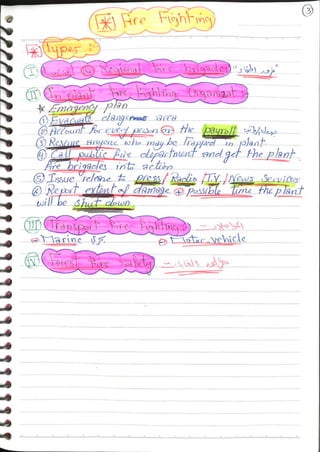 3
[*] Fire Fighting
[*] Types :-
I Local & Regional Fire brigades
II In plant Fire Fighting Organizat :-
* Emergency plan
① Evacuate dangerous area
② Account for every person on the payroll
③ Rescue anyone who may be Trapped in plant
④ Call public fire department and get the plant
fire brigades into action
⑤ Issue release to press/Radio/T.V/News Services
⑥ Report extent of damage & possible time the plant
will be shut down
III Transport Fire Fighting :-
Marine F.F. Motor vehicle
IV Forest Fire safety :-